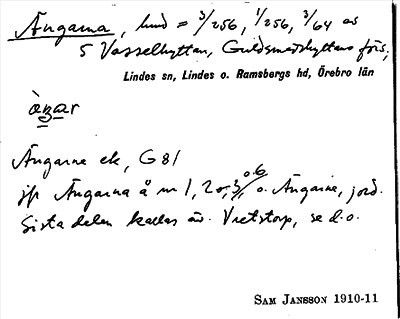 Ängarna, hmd = 3/256, 1/256, 3/64 av
5 Vasselhyttan, Guldsmedshyttans förs.,
Lindes sn, Lindes o. Ramsbergs hd, Örebro län
àŋar
Ängarne ek, G 81
jfr Ängarna å nr 1, 2 o. 3, o. 6 o. Ängarne, jord.
Sista delen kallas äv. Vretstorp, se d.o.
SAM JANSSON 1910-11